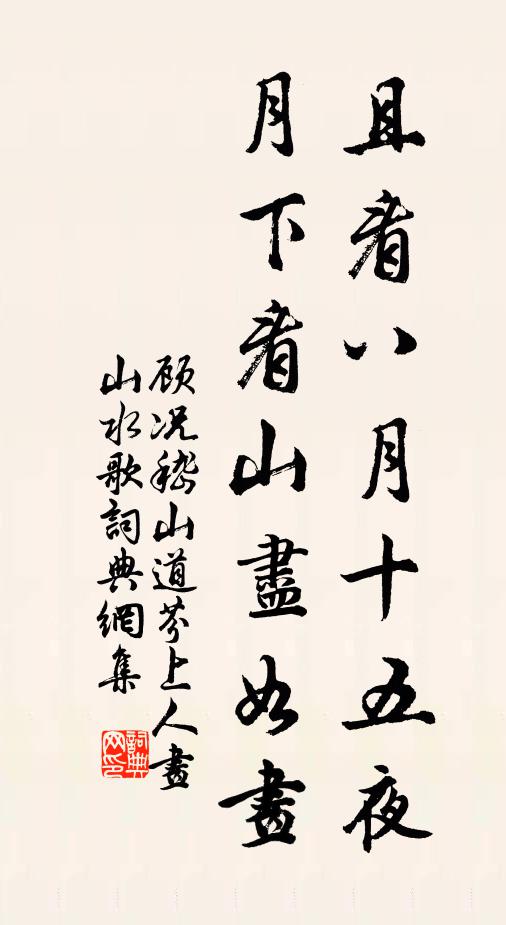 且看八月十五夜
月下看山盡如畫
顾况嵇山道芬上人畫
山水歌詞典網集
詞典
网印